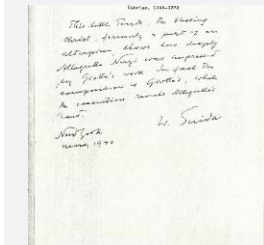 Umbrian, 1346-1373
This little Tondo, the blessing
Christ, formerly a part of an
altarpiece shows how deeply
Allegretto Nuzi was impressed
by Giotto's work. In fact the
composition is Giotto's, while
the execution reveals Allegretto's
hand.
W. Suida
New York
1940